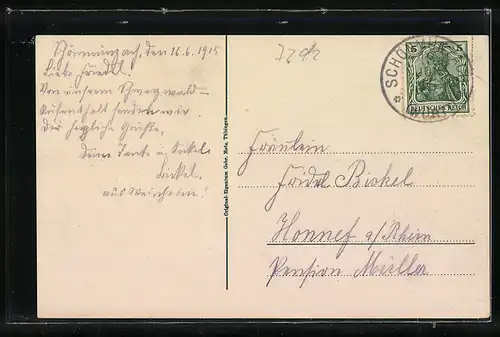 Schönmünzach, den 16.6.1915
Liebe Friedl!
Von unserem Schwarzwald-
Aufenthalt senden wir
Dir herzliche Grüße,
Deine Tante u. Onkel
Birkel.
aus Weinheim!
Original-Eigentum Gebr. Metz, Tübingen.
5 5
DEUTSCHES REICH
SCHÖNMÜ
WÜRT
Fräulein
Friedl Birkel
Honnef a/Rhein
Pension Müller